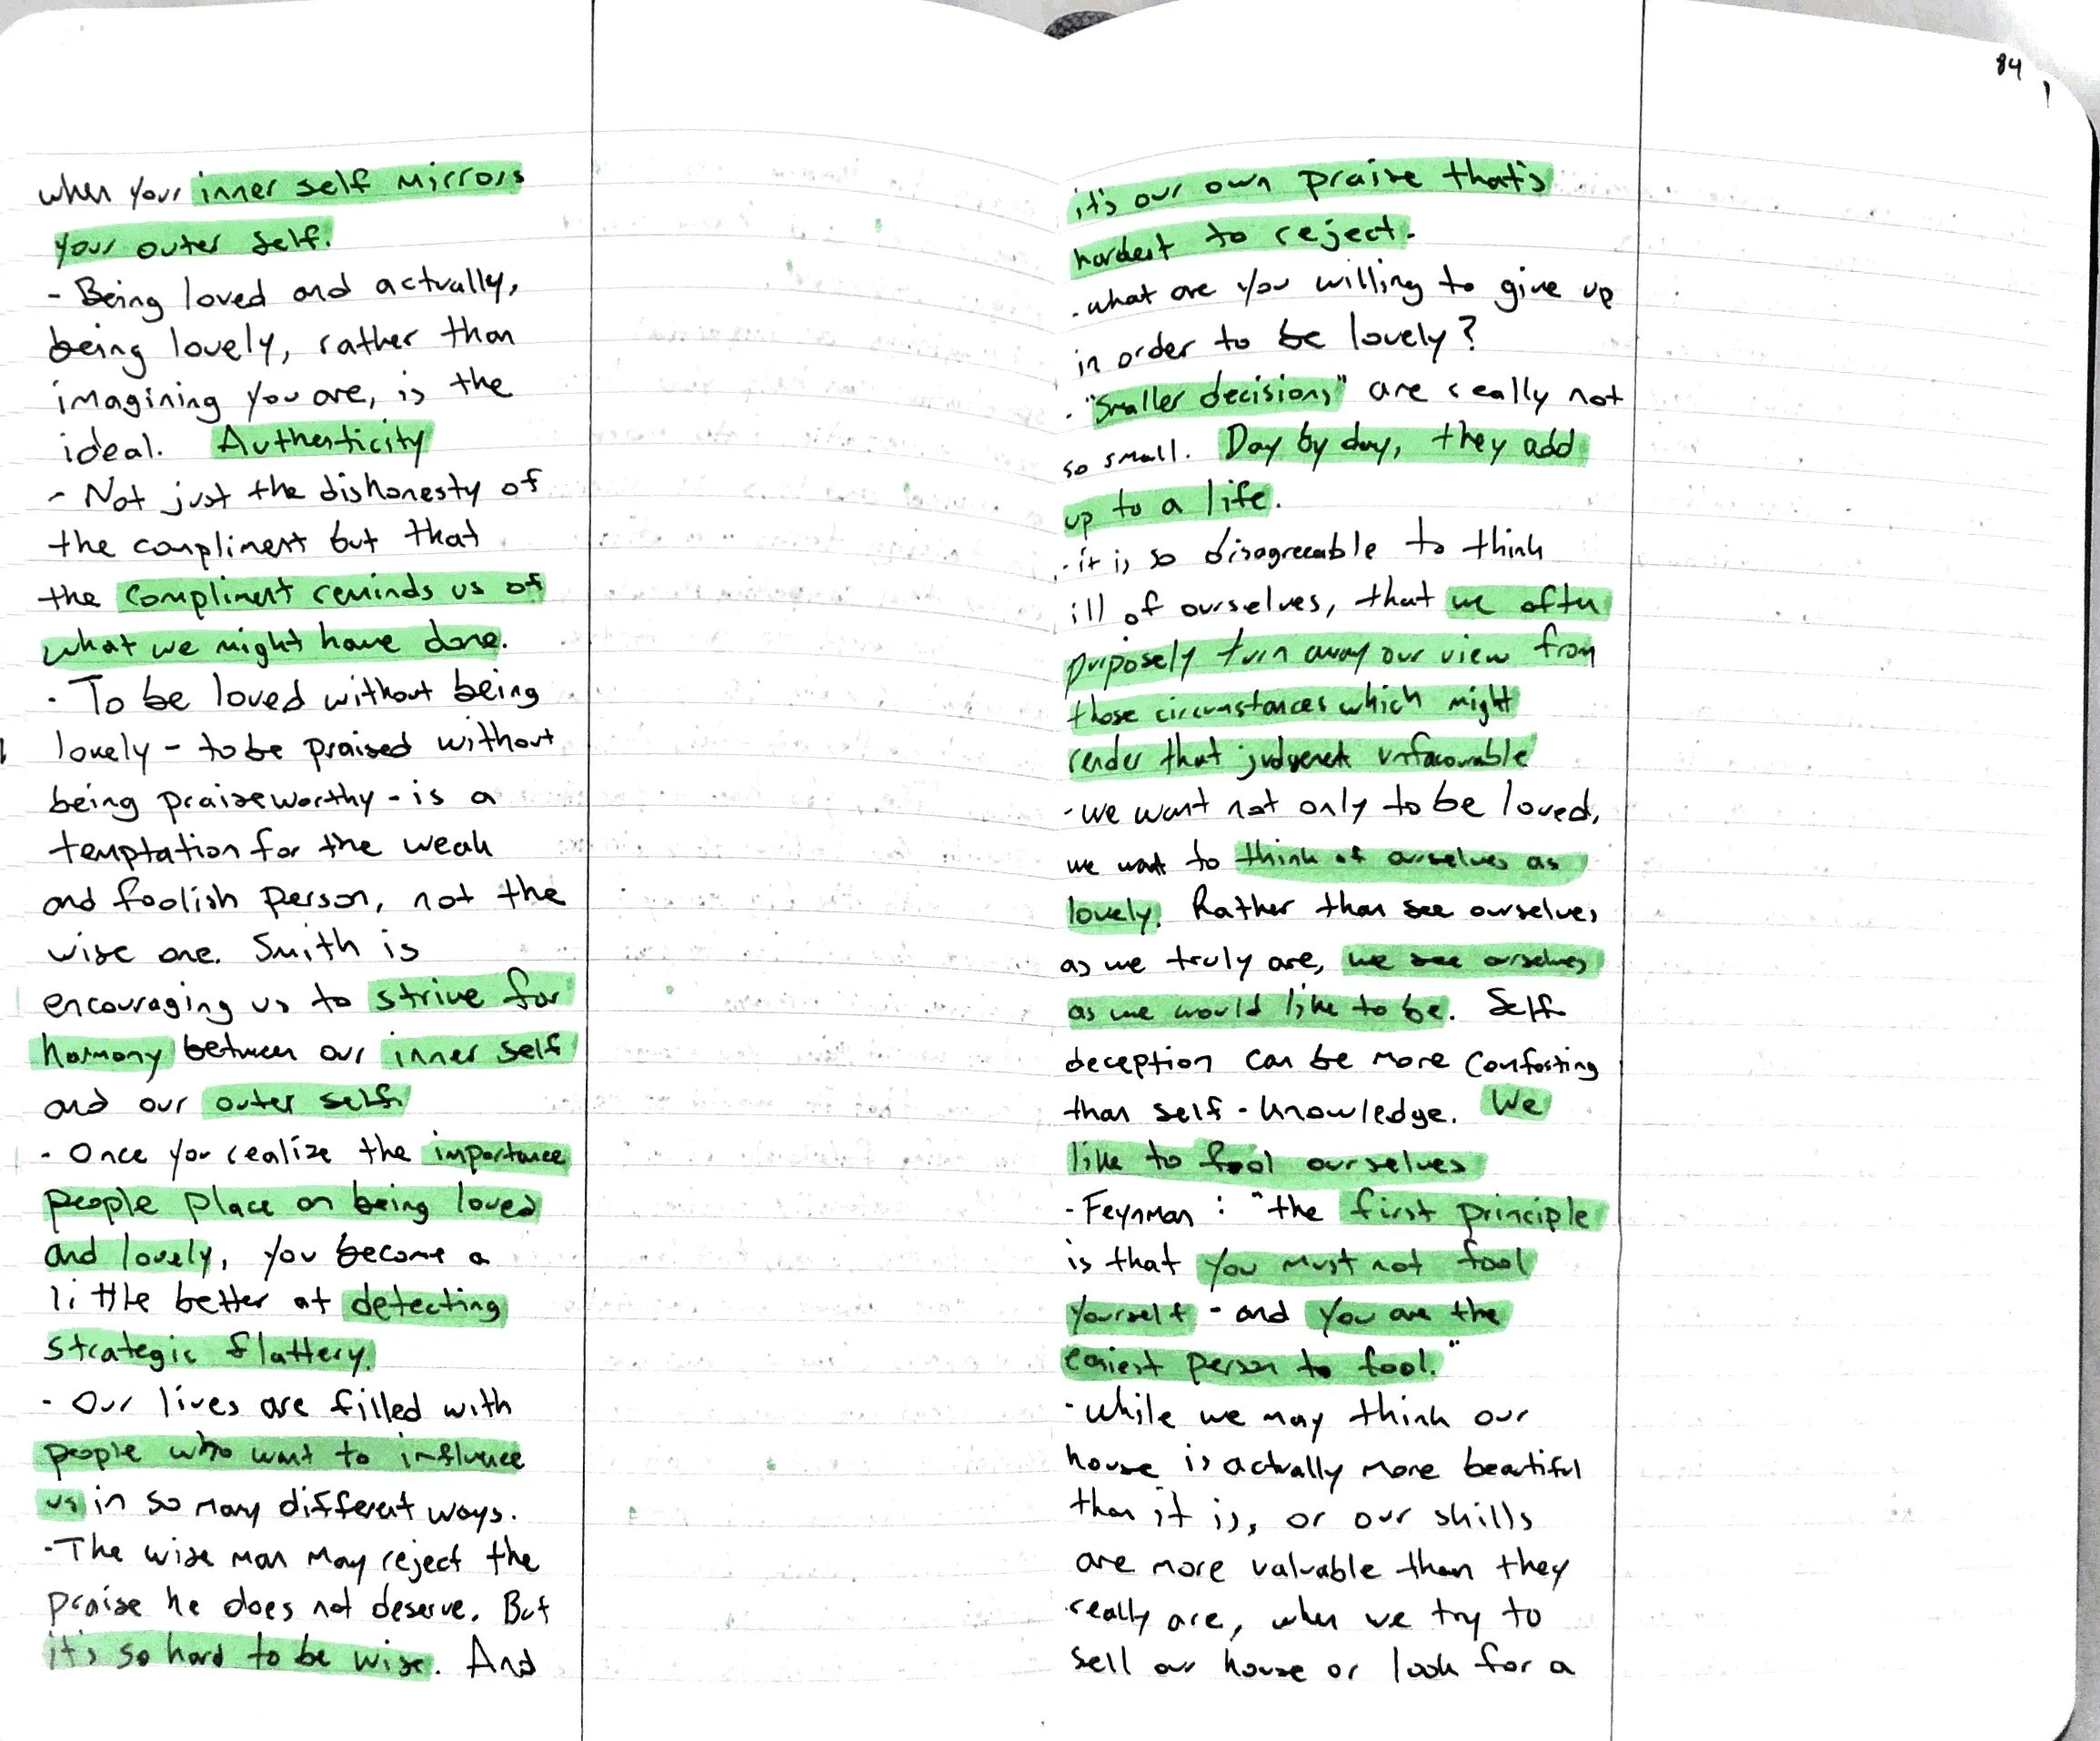 when your inner self mirrors
your outer self.
- Being loved and actually,
being lovely, rather than
imagining you are, is the
ideal. Authenticity
- Not just the dishonesty of
the compliment but that
the compliment reminds us of
what we might have done.
- To be loved without being
lovely - to be praised without
being praiseworthy - is a
temptation for the weak
and foolish person, not the
wise one. Smith is
encouraging us to strive for
harmony between our inner self
and our outer self.
- Once you realize the importance
people place on being loved
and lovely, you become a
little better at detecting
strategic flattery.
- Our lives are filled with
people who want to influence
us in so many different ways.
- The wise man may reject the
praise he does not deserve. But
it's so hard to be wise. And
84
it's our own praise that's
hardest to reject.
- what are you willing to give up
in order to be lovely?
- "Smaller decisions" are really not
so small. Day by day, they add
up to a life.
- it is so disagreeable to think
ill of ourselves, that we often
purposely turn away our view from
those circumstances which might
render that judgement unfavourable
- we want not only to be loved,
we want to think of ourselves as
lovely. Rather than see ourselves
as we truly are, we see ourselves
as we would like to be. Self
deception can be more comforting
than self-knowledge. We
like to fool ourselves
- Feynman : "the first principle
is that you must not fool
yourself - and you are the
easiest person to fool."
- while we may think our
house is actually more beautiful
than it is, or our skills
are more valuable than they
really are, when we try to
sell our house or look for a